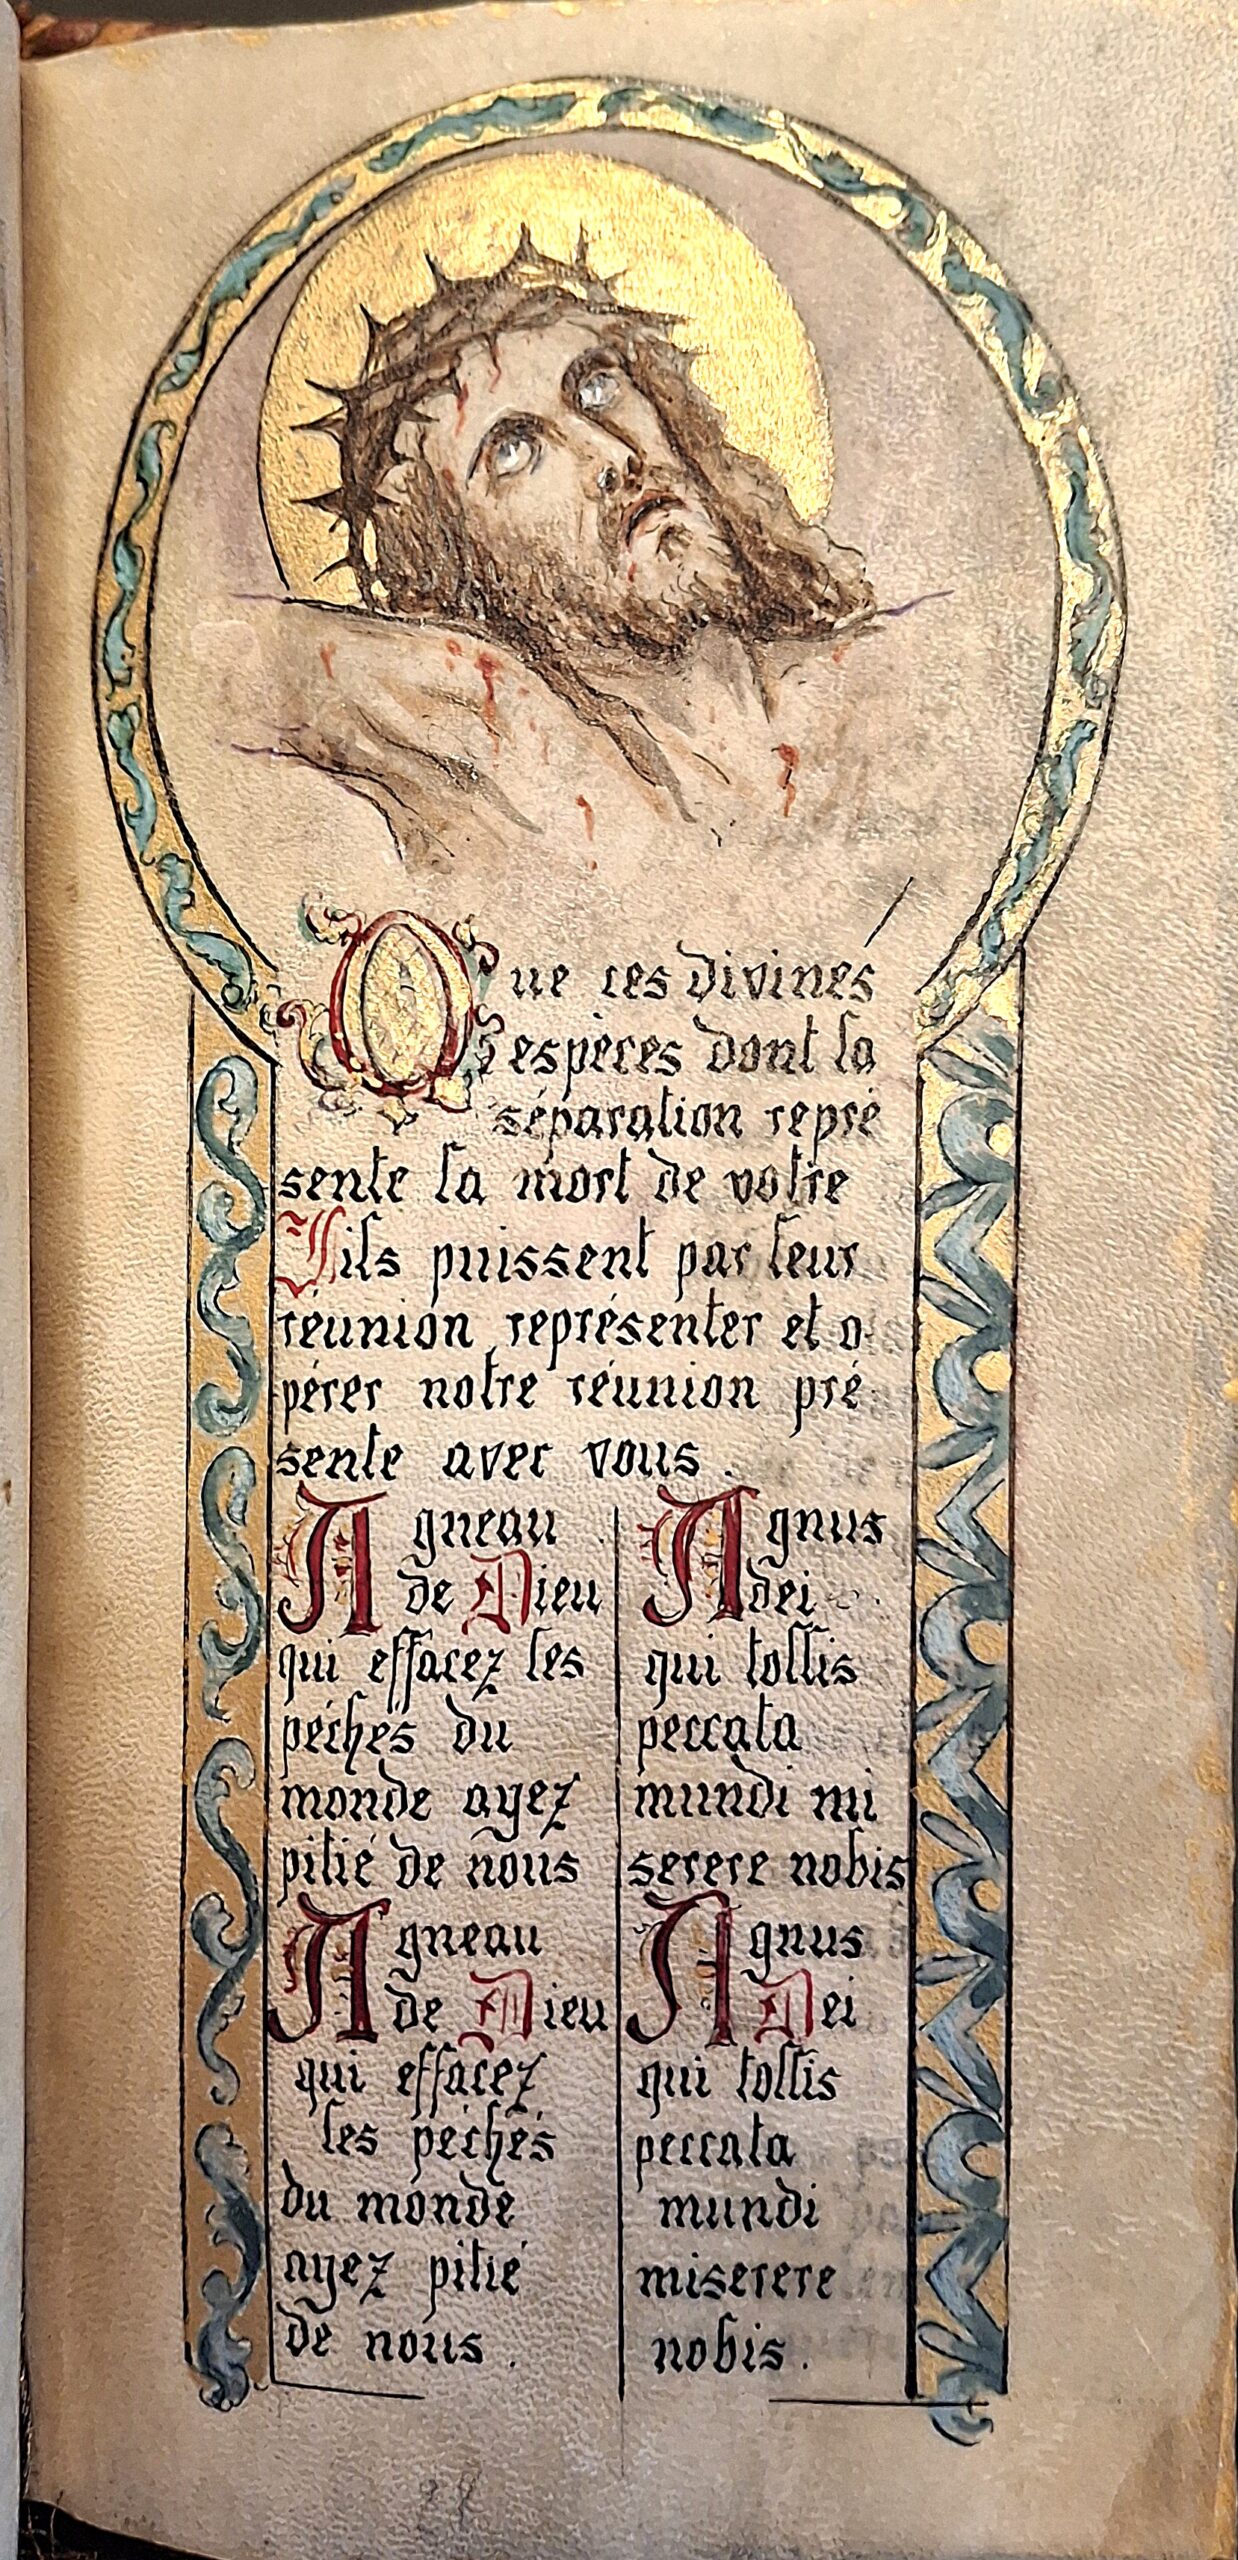 Que ces divines
espèces dont la
séparation repré
sente la mort de votre
Fils puissent par leur
réunion représenter et o-
pérer notre réunion pré-
sente avec vous.
Agneau
de Dieu
qui effacez les
péchés du
monde ayez
pitié de nous
Agneau
de Dieu
qui effacez
les péchés
du monde
ayez pitié
de nous.
Agnus
dei
qui tollis
peccata
mundi mi
serere nobis
Agnus
Dei
qui tollis
peccata
mundi
miserere
nobis.